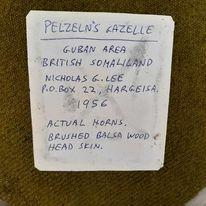 PELZELN'S GAZELLE
GUBAN AREA
BRITISH SOMALILAND
NICHOLAS G. LEE
P.O. BOX 22, HARGEISA.
1956
ACTUAL HORNS.
BRUSHED BALSA WOOD
HEAD SKIN.